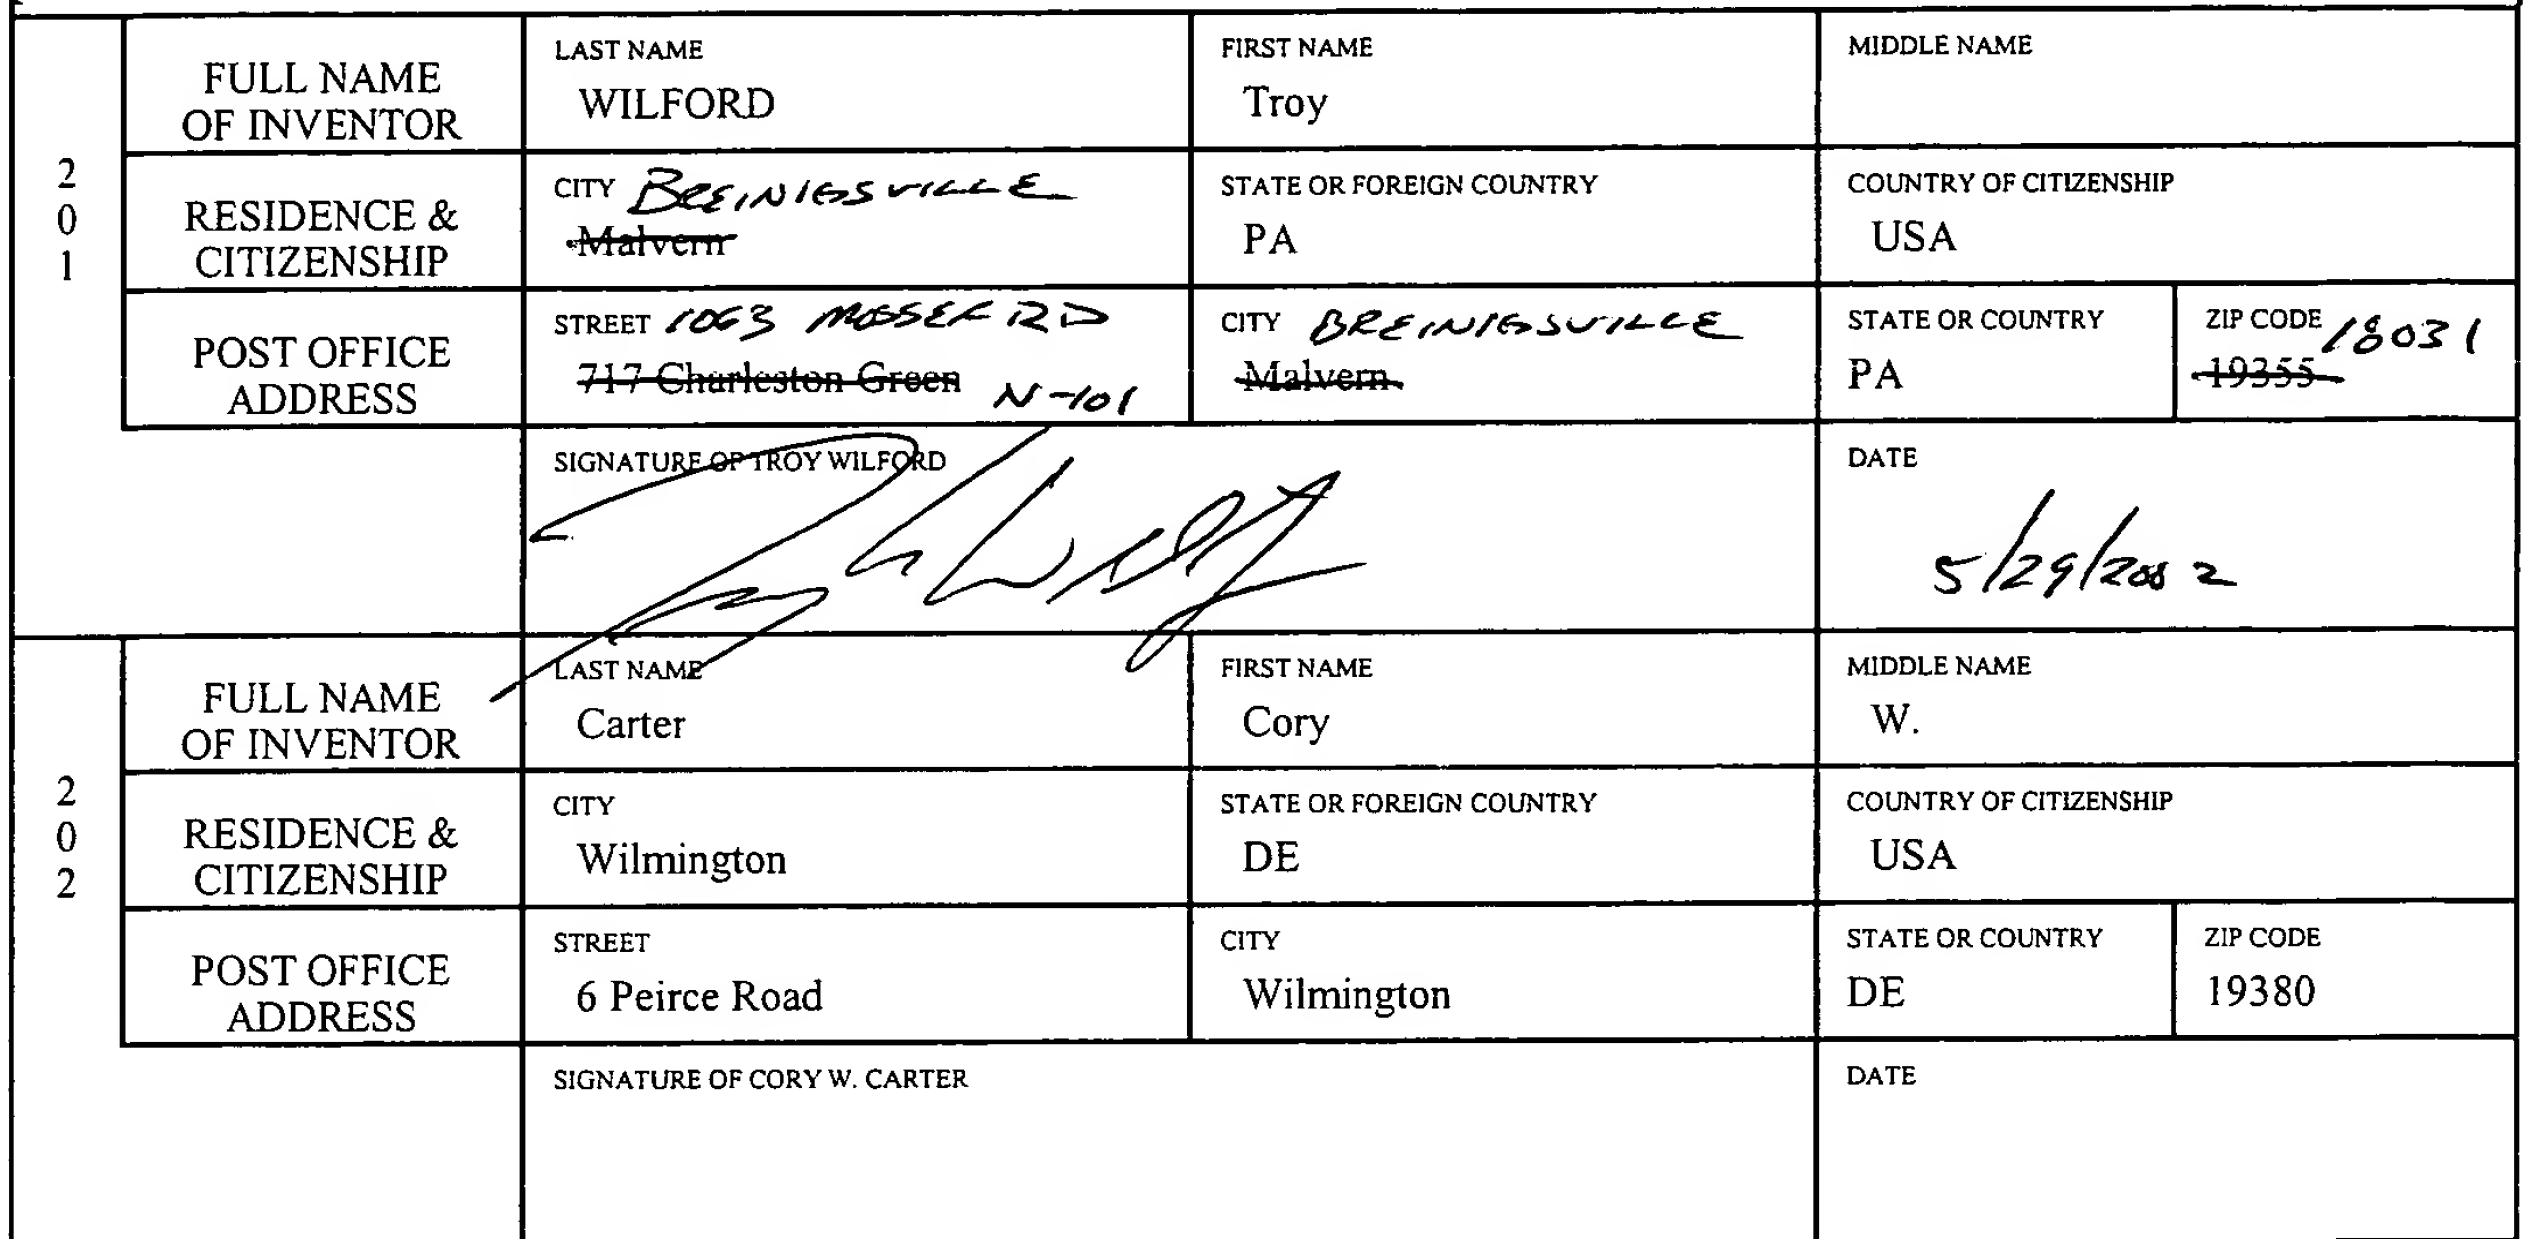 2
0
1
FULL NAME
OF INVENTOR
LAST NAME
WILFORD
FIRST NAME
Troy
MIDDLE NAME
RESIDENCE &
CITIZENSHIP
CITY BREINIGSVILLE
Malvern
STATE OR FOREIGN COUNTRY
PA
COUNTRY OF CITIZENSHIP
USA
POST OFFICE
ADDRESS
STREET 1063 MOSSER RD
717 Charleston Green N-101
CITY BREINIGSVILLE
Malvern
STATE OR COUNTRY
PA
ZIP CODE 18031
19355
SIGNATURE OF TROY WILFORD
DATE
5/29/2002
2
0
2
FULL NAME
OF INVENTOR
LAST NAME
Carter
FIRST NAME
Cory
MIDDLE NAME
W.
RESIDENCE &
CITIZENSHIP
CITY
Wilmington
STATE OR FOREIGN COUNTRY
DE
COUNTRY OF CITIZENSHIP
USA
POST OFFICE
ADDRESS
STREET
6 Peirce Road
CITY
Wilmington
STATE OR COUNTRY
DE
ZIP CODE
19380
SIGNATURE OF CORY W. CARTER
DATE